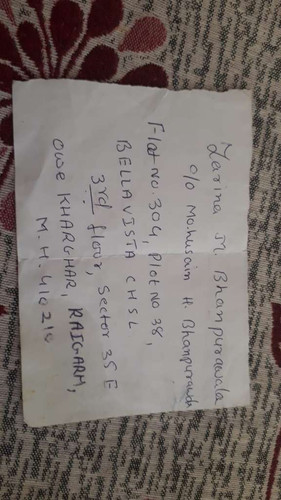 Zarina M. Bhanpurawala
c/o Mohusaim H. Bhanpurawala
Flat No. 304, Plot No 38,
BELLAVISTA CHSL
3rd floor, Sector 35 E
Owe KHARGHAR, RAIGARH,
M.H. 410210